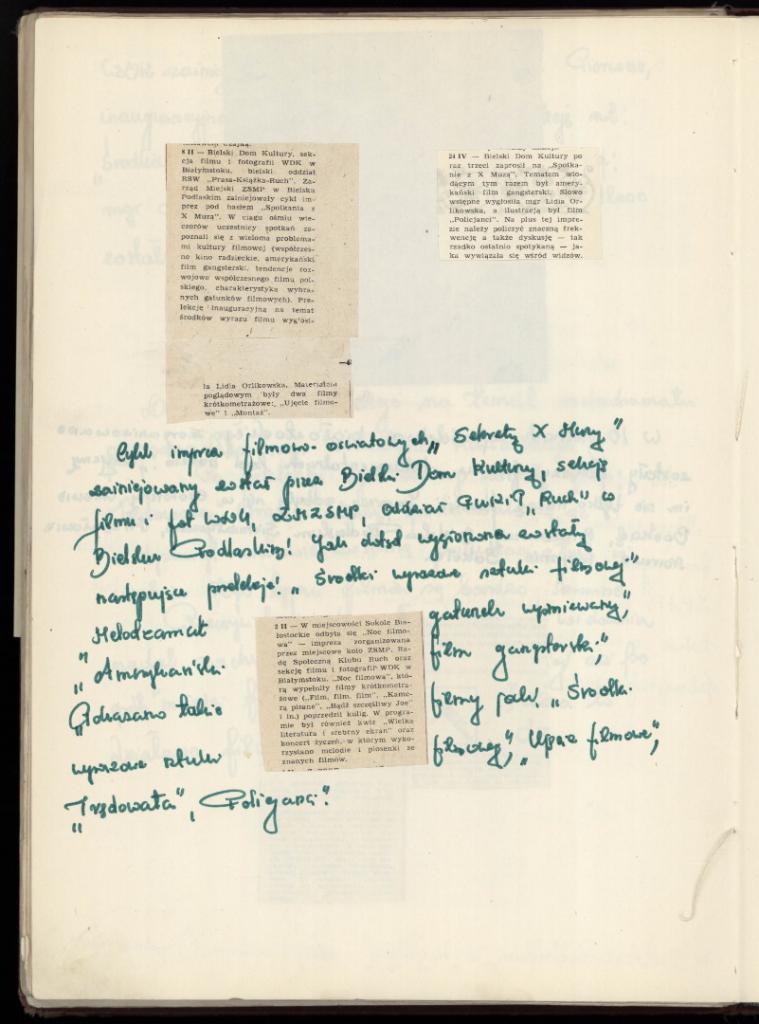 8 II — Bielski Dom Kultury, sek-
cja filmu i fotografii WDK w
Białymstoku, bielski oddział
RSW „Prasa-Książka-Ruch”, Za-
rząd Miejski ZSMP w Bielsku
Podlaskim zainicjowały cykl im-
prez pod hasłem „Spotkania z
X Muzą”. W ciągu ośmiu wie-
czorów uczestnicy spotkań za-
poznali się z wieloma problema-
mi kultury filmowej (współczes-
ne kino radzieckie, amerykański
film gangsterski, tendencje roz-
wojowe współczesnego filmu pol-
skiego, charakterystyka wybra-
nych gatunków filmowych). Pre-
lekcję inauguracyjną na temat
środków wyrazu filmu wygłosi-
ła Lidia Orlikowska. Materiałem
poglądowym były dwa filmy
krótkometrażowe: „Ujęcie filmo-
we” i „Montaż”.
24 IV — Bielski Dom Kultury po
raz trzeci zaprosił na „Spotka-
nie z X Muzą”. Tematem wio-
dącym tym razem był amery-
kański film gangsterski. Słowo
wstępne wygłosiła mgr Lidia Or-
likowska, a ilustracją był film
„Policjanci”. Na plus tej impre-
zie należy policzyć znaczną frek-
wencję a także dyskusję — tak
rzadko ostatnio spotykaną — ja-
ka wywiązała się wśród widzów.
Cykl imprez filmowo-oświatowych „Sekrety X Muzy”
zainicjowany został przez Bielski Dom Kultury, sekcję
filmu i fot WDK, ZMZSMP, oddział „Ruch” w
Bielsku Podlaskim! Jak dotąd wygłoszone zostały
następujące prelekcje: „Środki wyrazowe sztuki filmowej”
„Melodramat gatunek wyśmiewany”,
„Amerykański film gangsterski”,
Pokazano takie filmy jak: „Środki
wyrazowe sztuki filmowej”, „Ujęcie filmowe”,
„Trędowata”, „Policjanci”.
2 II — W miejscowości Sokole Bia-
łostockie odbyła się „Noc filmo-
wa” — impreza zorganizowana
przez miejscowe koło ZSMP, Ra-
dę Społeczną Klubu Ruch oraz
sekcję filmu i fotografii WDK w
Białymstoku. „Noc filmową”, któ-
rą wypełniły filmy krótkometra-
żowe („Film, film, film”, „Kame-
rą pisane”, „Bądź szczęśliwy Joe”
i in.) poprzedził kulig. W progra-
mie był również kwiz „Wielka
literatura i srebrny ekran” oraz
koncert życzeń, w którym wyko-
rzystano melodie i piosenki ze
znanych filmów.